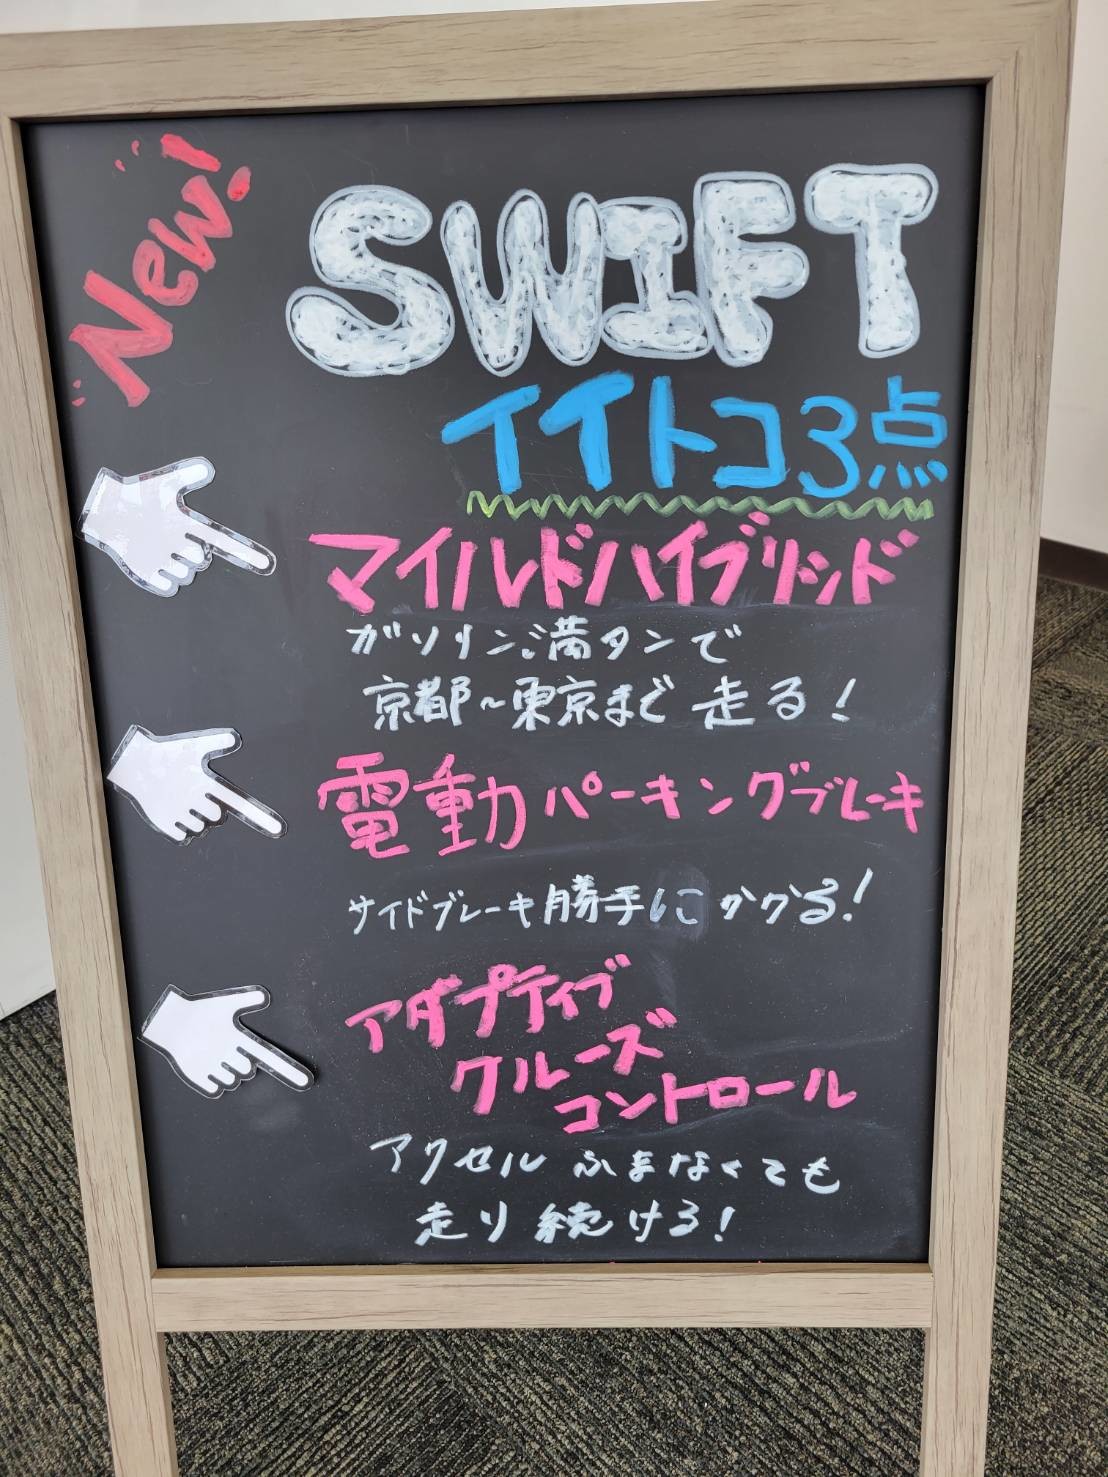 New!
SWIFT
イイトコ3点
マイルドハイブリッド
ガソリン満タンで
京都~東京まで走る!
電動パーキングブレーキ
サイドブレーキ勝手にかかる!
アダプティブ
クルーズ
コントロール
アクセルふまなくても
走り続ける!